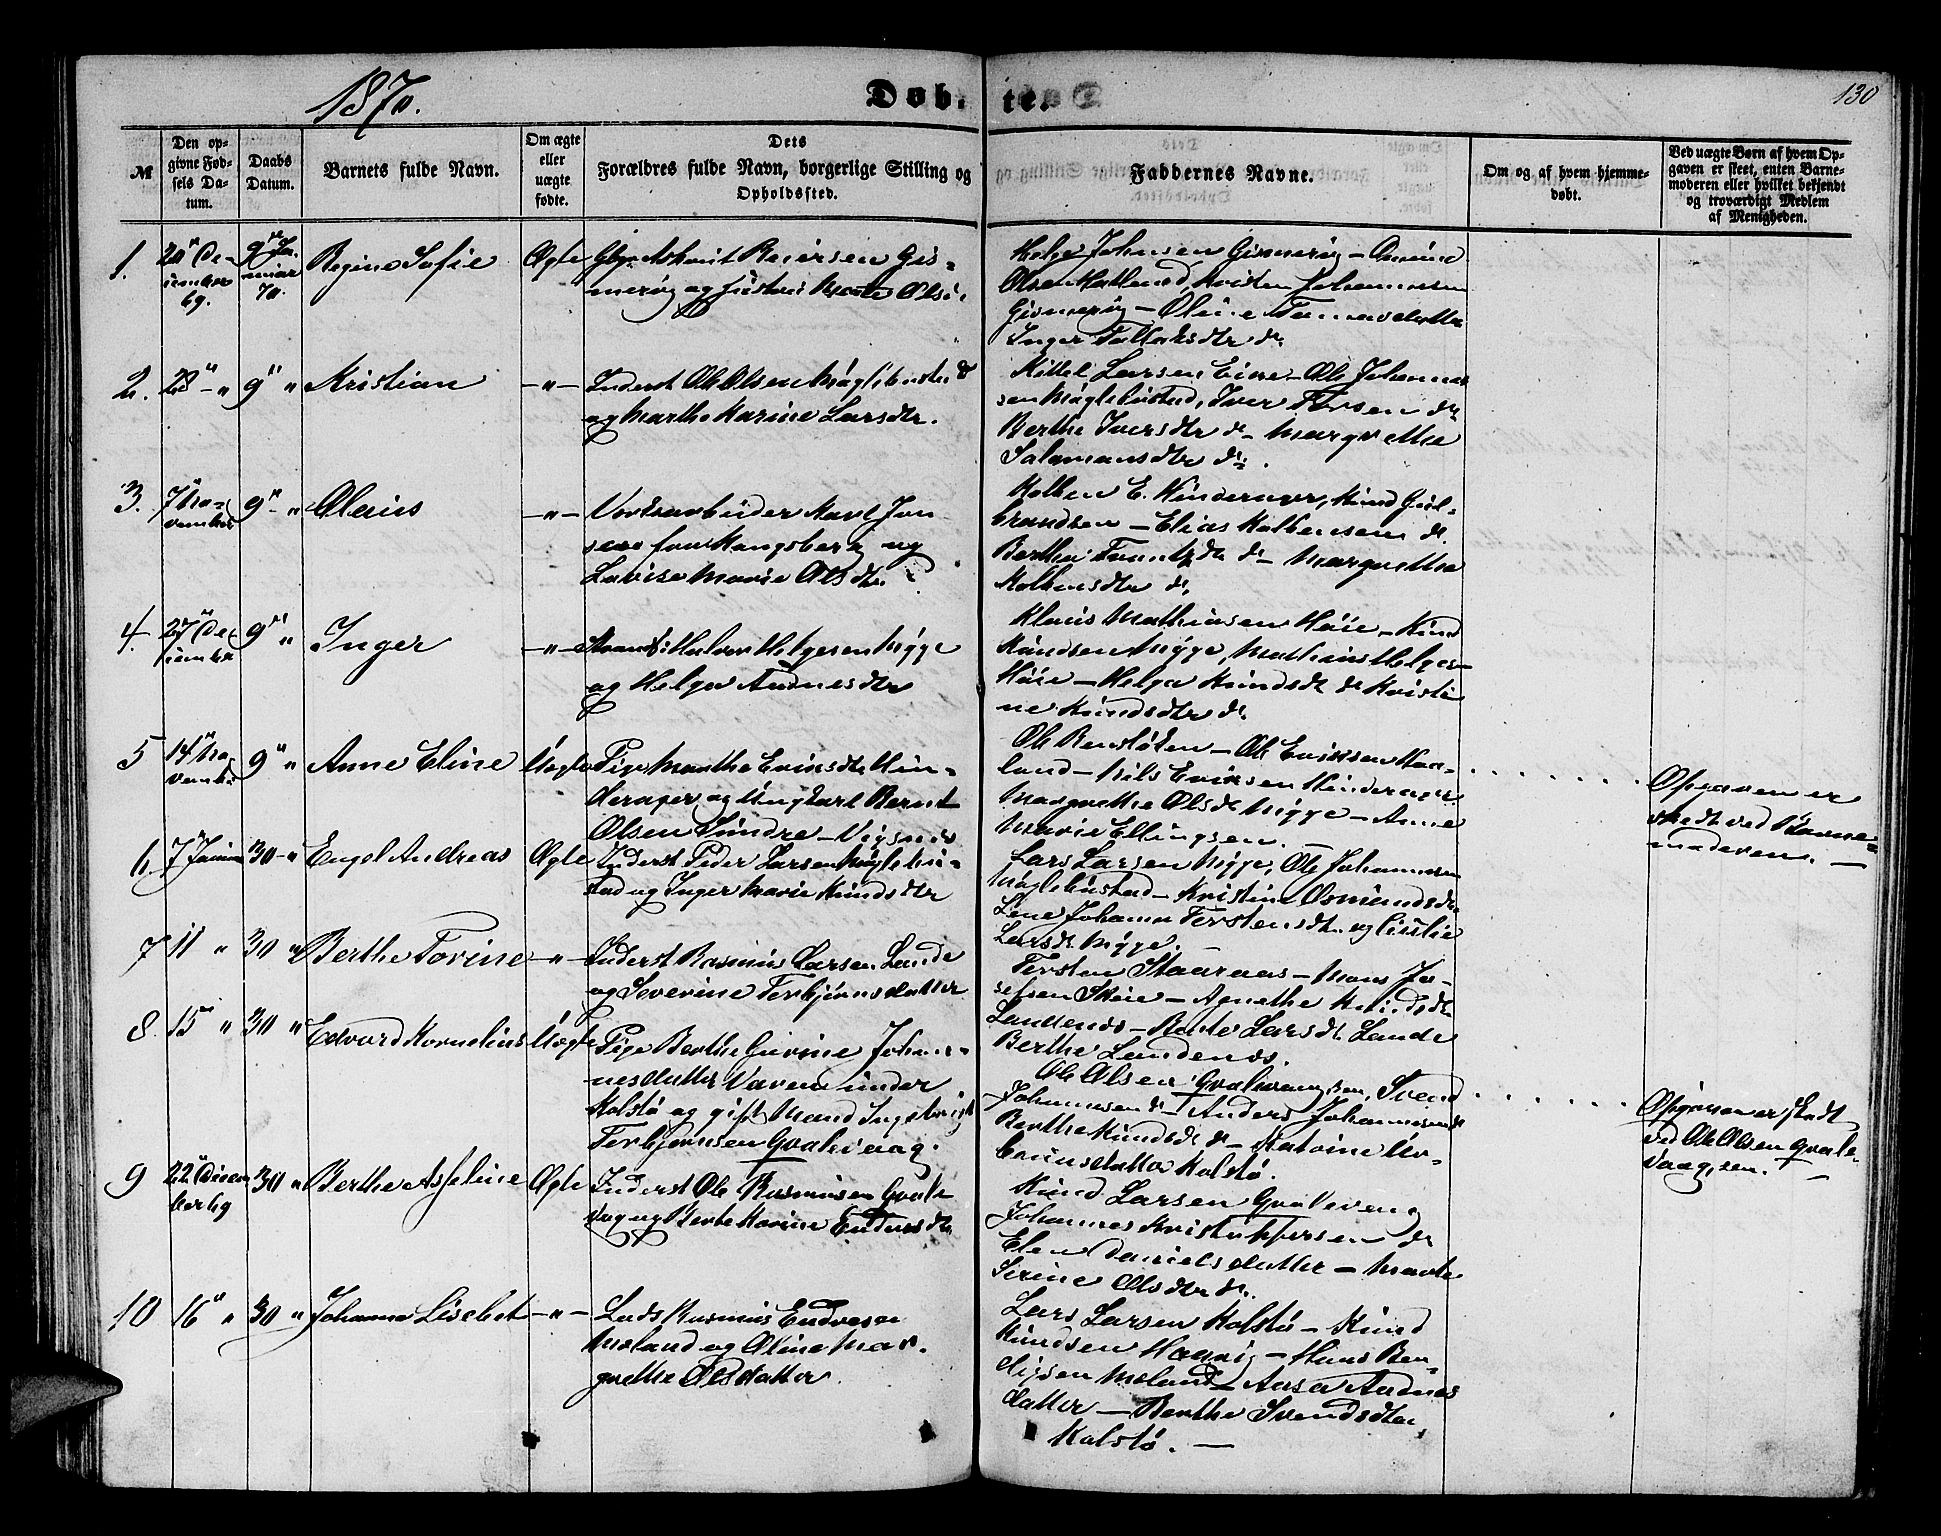 1870.
Døbte.
130
№
Den opgivne Fødsels Datum.
Daabs Datum.
Barnets fulde Navn.
Om ægte eller uægte fødte.
Dets Forældres fulde Navn, borgerlige Stilling og Opholdssted.
Faddernes Navne.
Om og af hvem hjemmedøbt.
Ved uægte Børn af hvem Opgaven er skeet, enten Barnemoderen eller hvilket bekjendt og troværdigt Medlem af Menigheden.
1. 20" December 69. 9" Januar 70. Regine Sofie Ægte
Reiersen Gismerøig og Olsd.
Helge Johnsen Gismerøig – Omund
Olsen Johannessen
Gismerøig – Oline
Inger Tallaksdtr do
2. 28" – " 9" " Kristian –"– Inderst Ole Olsen Møglebustd
og Marthe Karine Larsdtr.
Kittel Larsen Eine – Ole Johannes
sen Møglebustad, Iver Tersen do
Berthe Iversdtr do – Margrethe
Salamonsdtr do.
3. 7" November 9" – " Olaus –"– Verksarbeider Karl Jon
sen fra Kongsberg og
Lovise Marie Olsdtr.
Kolben E. Hinderager, Knud Gul-
brandsen – Elias Kolbensen do.
Berthe do – Margrethe
Kolbensdtr do.
4. 27" December 9" " Inger –"– Halvor Helgesen Mygge
og Helga Audnesdtr
Klaus Mathiasen Høie – Knud
Knudsen Mygge, Mathias Helges–
Høie – Helga Knudsdt do Kristi
ne Knudsdtr do.
5 14" November 9" " Anne Eline Uægte Pige Marthe Eriksdt Hin-
derager og Ungkarl Bernt
Olsen Søndre – Vigsnes
Ole – Ole Eriksen Haa-
land – Nils Eriksen Hinderager
Margrethe Olsdt Mygge – Anne
Marie Ellingsen.
Opgaven er
skedt ved Barne-
moderen. –
6. 7" Januar 30 – " Engel Andreas Ægte Inderst Peder Larsen Møglebu-
stad og Inger Marie Knudsdtr
Lars Larsen Mygge, Ole Johannesen
Møglebustad – Kristine Osmundsdt
Lene Johanne Terstensdt. og
Larsdt. Mygge.
7 11 " 30 " Berthe Torine –"– Inderst Rasmus Larsen Lande
og Severine Terbjørnsdatter
Tersten Staaraas – Mons Jo-
sefsen Skeie – Agnethe Knudsdt
Landenes – Larsdt. Lande
Berthe Landenes.
8. 15 " 30 " Edvard Kornelius Uægte Pige Berthe Gurine Johan-
nesdatter Varen under
Kolstø og gift Mand Ingebrigt
Terbjørnsen Gvalevaag.
Ole Olsen Gvalevaagsen, Svend
Johannesen do – Anders Johannesen do
Berthe Knudsdt do – Katrine
datter Kolstø.
Opgaven er skedt
ved Ole Olsen Gvale-
vaagsen. –
9 22" December 69 30 " Berthe Asseline Ægte Inderst Ole Rasmusen Gvale
vag og Berte Karine Endresdtr
Knud Larsen Gvalevaag
Johannes Kristoffersen do
Elen Danielsdatter – Marte
Serine Olsdtr do.
10 16" " 30 " Johanna Lisebet –"– Lods Rasmus Endresen
Meland og Oline Mar-
grethe Olsdatter
Lars Larsen Kolstø – Knud
Knudsen Haavig – Hans Ben-
digsen Meland – Aasa Audnes
datter – Berthe Svendsdtr,
Kolstø. –